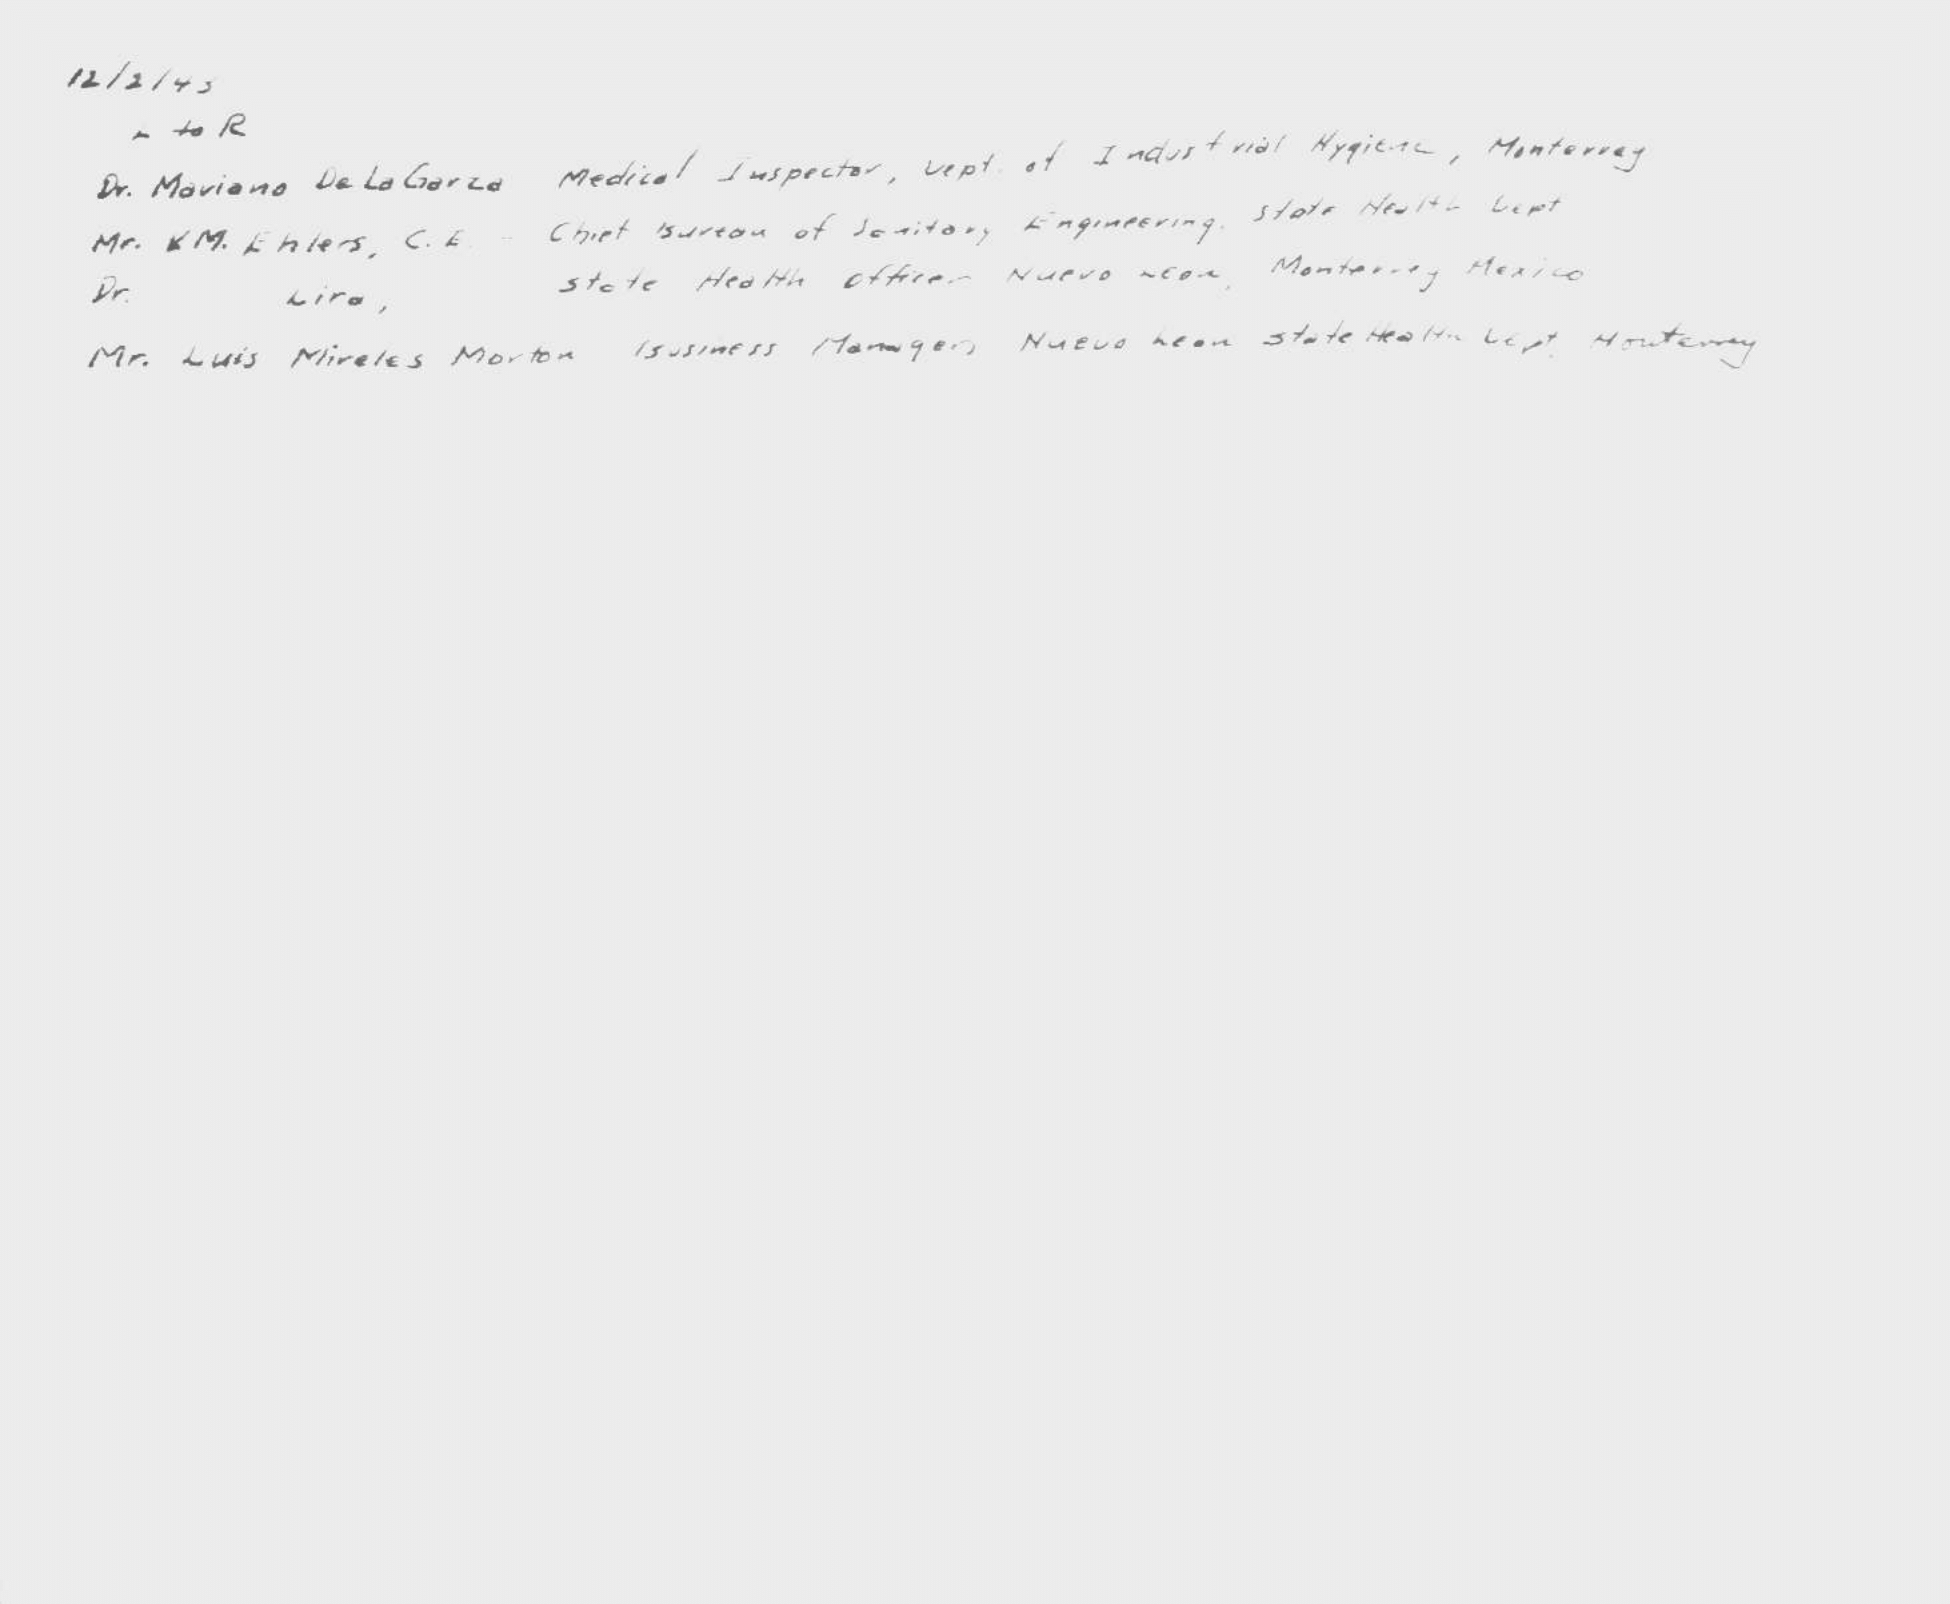 12/2/43
L to R
Dr. Mariano De La Garza Medical Inspector, Dept. of Industrial Hygiene, Monterrey
Mr. V M. Ehlers, C. E. - Chief Bureau of Sanitary Engineering. State Health Dept
Dr. Lira, State Health Officer Nuevo Leon, Monterrey Mexico
Mr. Luis Mireles Morton Business Manager, Nuevo Leon State Health Dept. Monterrey